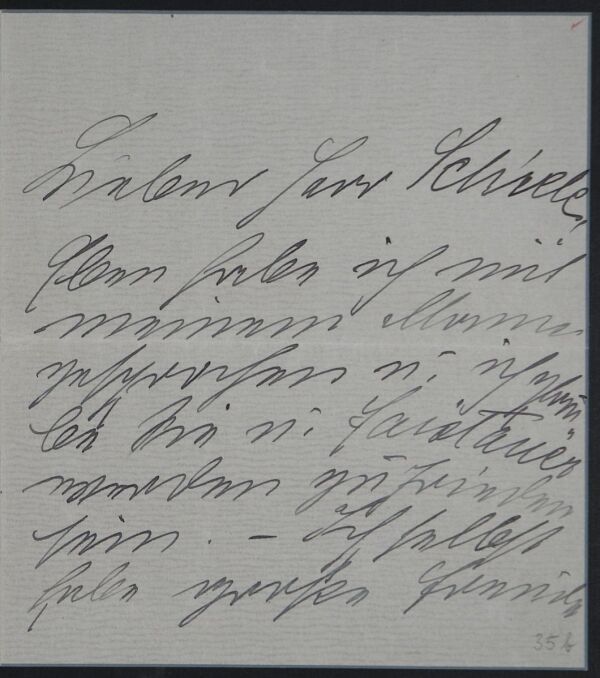 Lieber Herr Schiele,
Eben habe ich mit
meinem Manne
gesprochen u. ich glau
be Sie u. Faistauer
werden zufrieden
sein. – Ich selbst
habe große Freude
35b